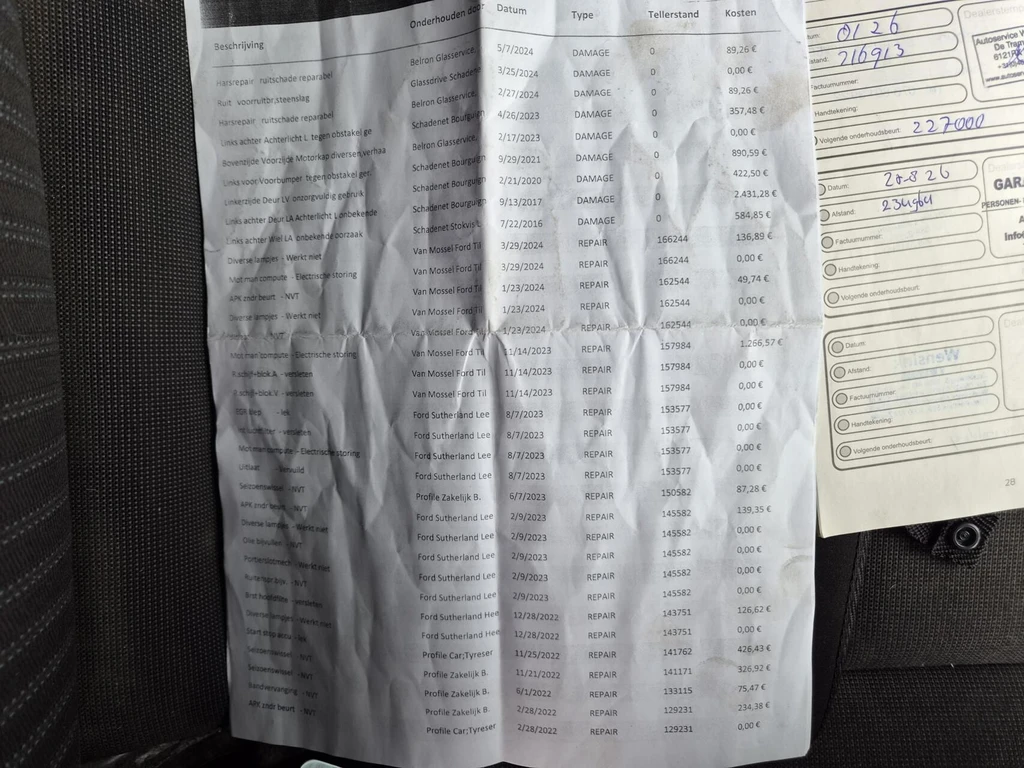 Beschrijving Onderhouden door Datum Type Tellerstand Kosten
Harsrepair ruitschade reparabel Belron Glasservice, 5/7/2024 DAMAGE 0 89,26 €
Ruit voorruitbr.steenslag Glassdrive Schadene 3/25/2024 DAMAGE 0 0,00 €
Harsrepair ruitschade reparabel Belron Glasservice, 2/27/2024 DAMAGE 0 89,26 €
Links achter Achterlicht L tegen obstakel ge Schadenet Bourguign 4/26/2023 DAMAGE 0 357,48 €
Bovenzijde Voorzijde Motorkap diversen,verhaa Belron Glasservice, 2/17/2023 DAMAGE 0 0,00 €
Links voor Voorbumper tegen obstakel ger. Schadenet Bourguign 9/29/2021 DAMAGE 0 890,59 €
Linkerzijde Deur LV onzorgvuldig gebruik Schadenet Bourguign 2/21/2020 DAMAGE 0 422,50 €
Links achter Deur LA Achterlicht L onbekende Schadenet Bourguign 9/13/2017 DAMAGE 0 2.431,28 €
Links achter Wiel LA onbekende oorzaak Schadenet Stokvis L 7/22/2016 DAMAGE 0 584,85 €
Diverse lampjes - Werkt niet Van Mossel Ford Til 3/29/2024 REPAIR 166244 136,89 €
Mot.man.compute - Electrische storing Van Mossel Ford Til 3/29/2024 REPAIR 166244 0,00 €
APK zndr beurt - NVT Van Mossel Ford Til 1/23/2024 REPAIR 162544 49,74 €
Diverse lampjes - Werkt niet Van Mossel Ford Til 1/23/2024 REPAIR 162544 0,00 €
Mot.man.compute - Electrische storing Van Mossel Ford Til 1/23/2024 REPAIR 162544 0,00 €
R.schijf+blok.A - versleten Van Mossel Ford Til 11/14/2023 REPAIR 157984 1.266,57 €
R.schijf+blok.V - versleten Van Mossel Ford Til 11/14/2023 REPAIR 157984 0,00 €
EGR klep - lek Van Mossel Ford Til 11/14/2023 REPAIR 157984 0,00 €
- versleten Ford Sutherland Lee 8/7/2023 REPAIR 153577 0,00 €
Mot.man.compute - Electrische storing Ford Sutherland Lee 8/7/2023 REPAIR 153577 0,00 €
Uitlaat - Vervuild Ford Sutherland Lee 8/7/2023 REPAIR 153577 0,00 €
Seizoenswissel - NVT Ford Sutherland Lee 8/7/2023 REPAIR 153577 0,00 €
APK zndr beurt - NVT Profile Zakelijk B. 6/7/2023 REPAIR 150582 87,28 €
Diverse lampjes - Werkt niet Ford Sutherland Lee 2/9/2023 REPAIR 145582 139,35 €
Olie bijvullen - NVT Ford Sutherland Lee 2/9/2023 REPAIR 145582 0,00 €
- Werkt niet Ford Sutherland Lee 2/9/2023 REPAIR 145582 0,00 €
- NVT Ford Sutherland Lee 2/9/2023 REPAIR 145582 0,00 €
- versleten Ford Sutherland Lee 2/9/2023 REPAIR 145582 0,00 €
Diverse lampjes - Werkt niet Ford Sutherland Hee 12/28/2022 REPAIR 143751 126,62 €
Start stop accu - lek Ford Sutherland Hee 12/28/2022 REPAIR 143751 0,00 €
Seizoenswissel - NVT Profile Car;Tyreser 11/25/2022 REPAIR 141762 426,43 €
Seizoenswissel - NVT Profile Zakelijk B. 11/21/2022 REPAIR 141171 326,92 €
Bandvervanging - NVT Profile Zakelijk B. 6/1/2022 REPAIR 133115 75,47 €
APK zndr beurt - NVT Profile Zakelijk B. 2/28/2022 REPAIR 129231 234,38 €
Profile Car;Tyreser 2/28/2022 REPAIR 129231 0,00 €
01 26
216913
Autoservice
De Tram
6121
Factuurnummer:
Handtekening:
Volgende onderhoudsbeurt: 227000
Datum: 28-8 26
Afstand: 234964
Factuurnummer:
Handtekening:
Volgende onderhoudsbeurt:
GAR
PERSONEN-
Datum:
Afstand:
Factuurnummer:
Handtekening:
Volgende onderhoudsbeurt:
28